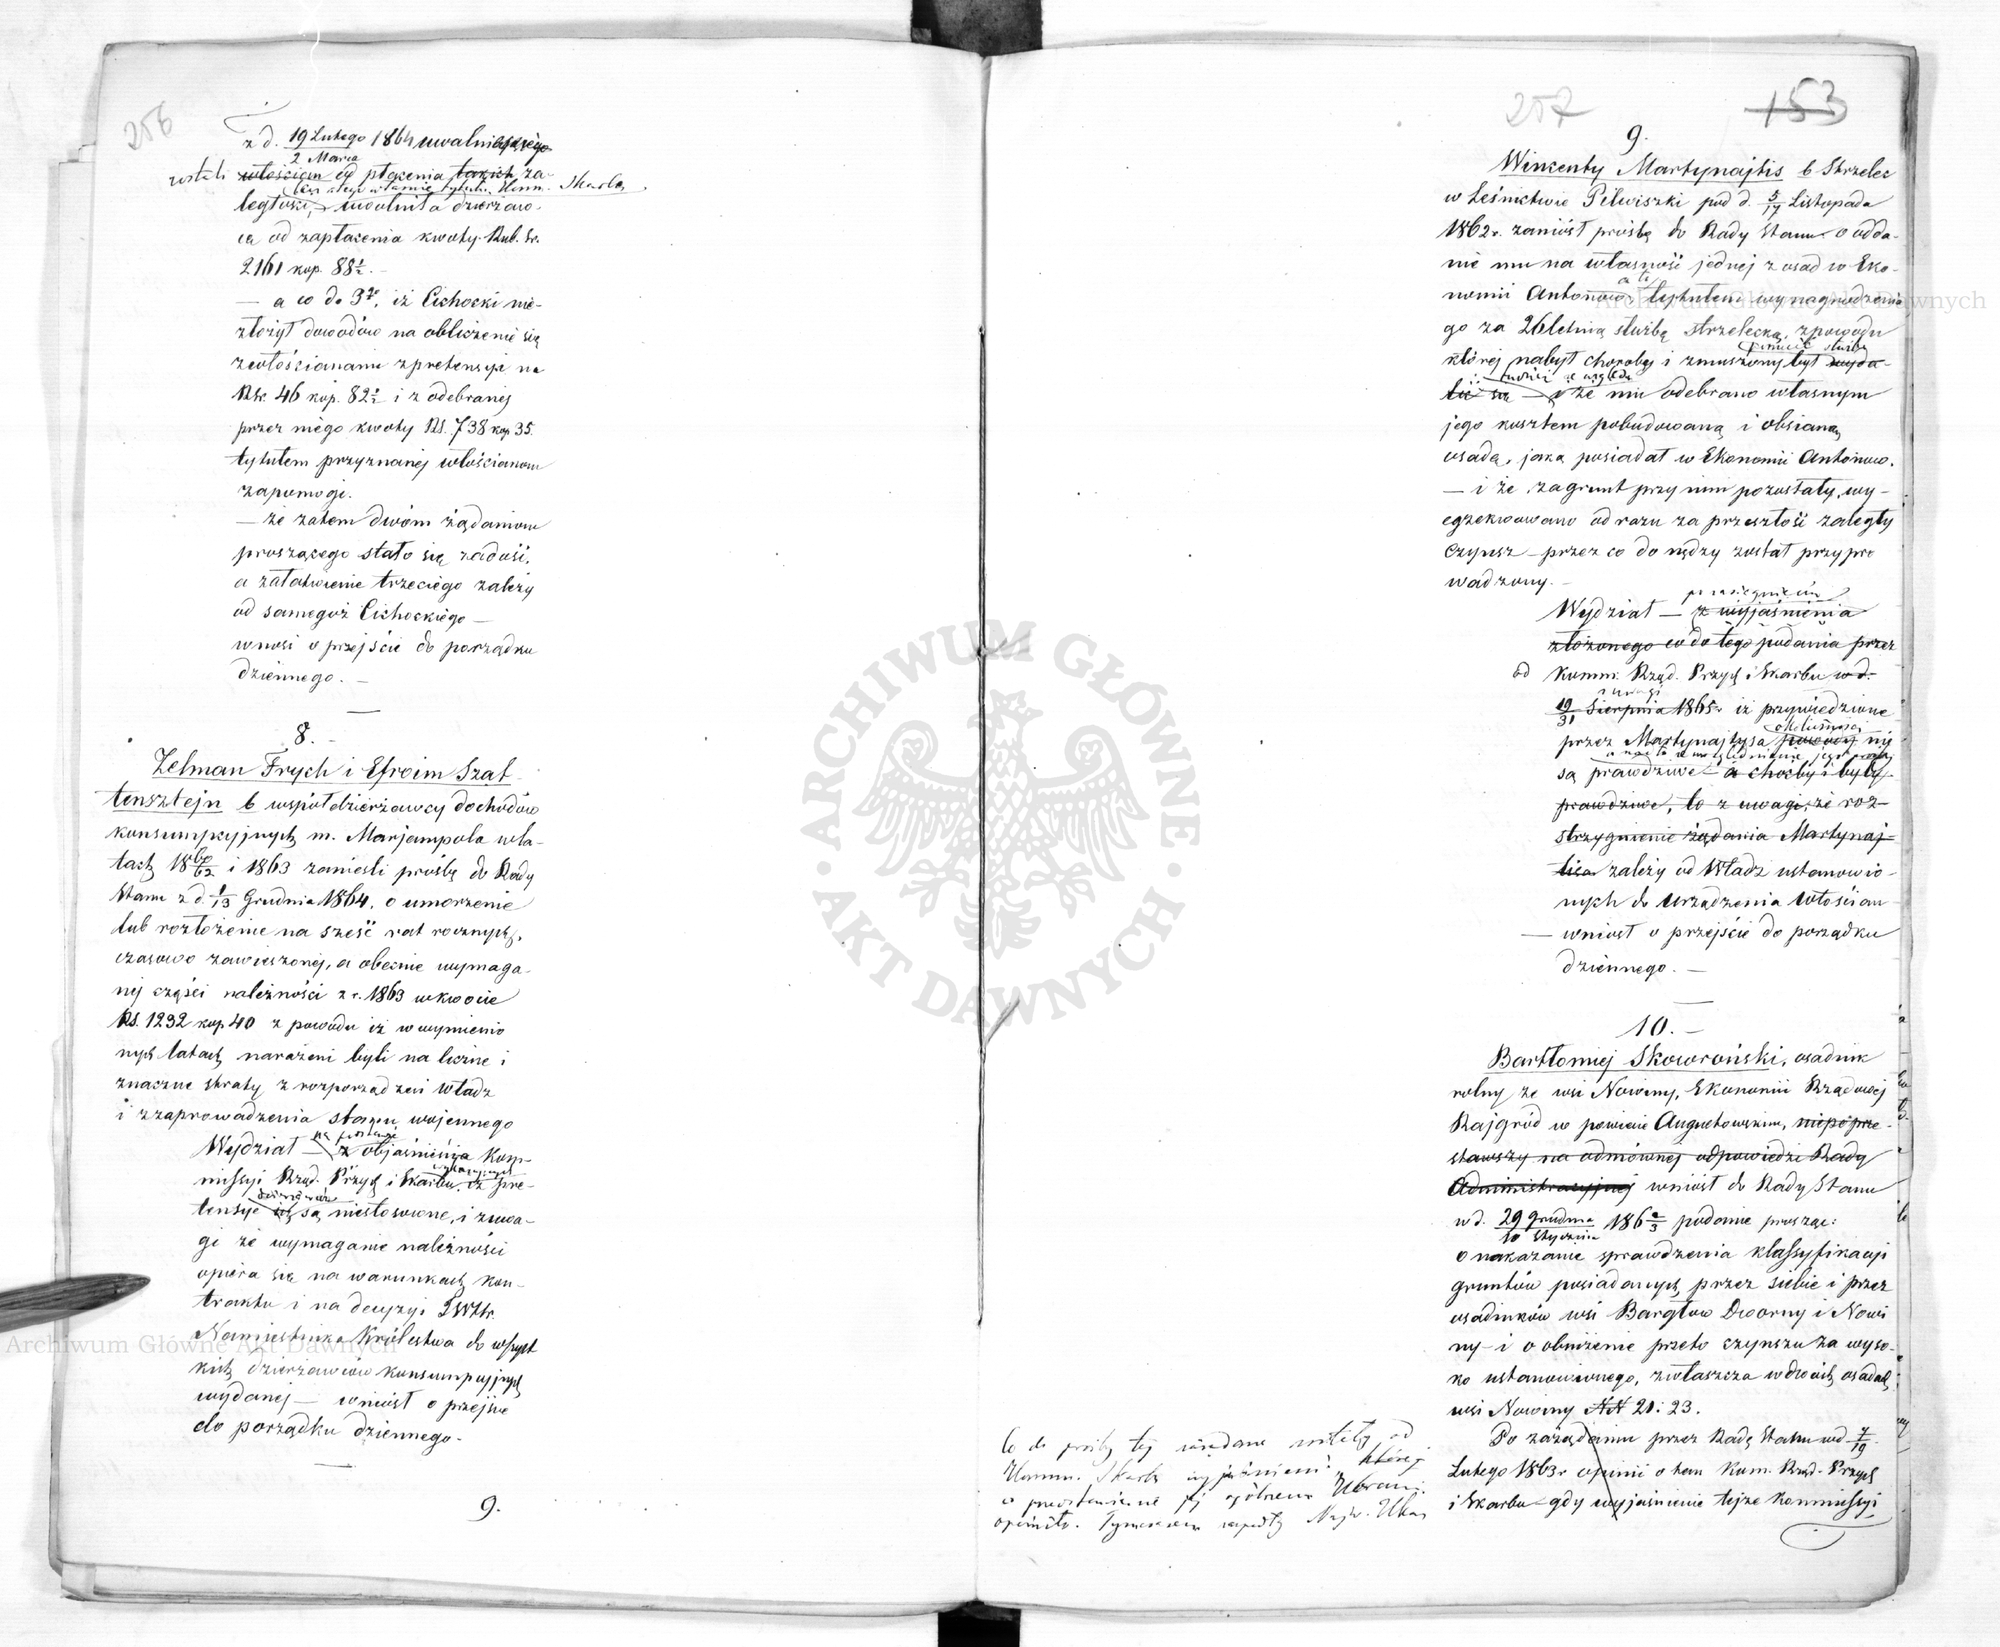 256
z d. 19 Lutego / 2 Marca 1864 uwalniającego
zostali włościan od płacenia takich za-
także z tego właśnie tytułu Komm. Skarbu
ległości, – uwolniła dzierżaw-
cę od zapłacenia kwoty Rub. sr.
2161 kop. 88½. –
– a co do 3go, iż Cichocki nie-
złożył dowodów na obliczenie się
z włościanami z pretensyi na
Rsr. 46 kop. 82½ i z odebranej
przez niego kwoty Rs. 738 kop 35.
tytułem przyznanej włościanom
zapomogi.
– że zatem dwóm żądaniom
proszącego stało się zadość,
a załatwienie trzeciego zależy
od samegoż Cichockiego –
wnosi o przejście do porządku
dziennego. –
8. –
Zelman Frych i Efroim Szat-
tensztejn b. współdzierżawcy dochodów
konsumpcyjnych m. Marjampola w la-
tach 1860/62 i 1863 zanieśli prośbę do Rady
Stanu z d. 1/13 Grudnia 1864, o umorzenie
lub rozłożenie na sześć rat rocznych,
czasowo zawieszonej, a obecnie wymaga-
nej części należności z r. 1863 w kwocie
Rs. 1292 kop 40 z powodu iż w wymienio
nych latach narażeni byli na liczne i
znaczne straty z rozporządzeń Władz
i z zaprowadzenia stanu wojennego
Wydział – z objaśnienia Kom-
missyi Rząd. Przych i Skarbu, iż pre-
tensye ich są niestosowne, i z uwa-
gi że wymaganie należności
opiera się na warunkach kon-
traktu i na decyzyi JWHr.
Namiestnika Królestwa do wszyst
kich dzierżawców konsumpcyjnych
wydanej – wniósł o przejście
do porządku dziennego. –
9.
257
153
9.
Winzenty Martynajtis b Strzelec
w Leśnictwie Pilwiszki pod d. 5/17 Listopada
1862 r. zaniósł prośbę do Rady Stanu o odda-
nie mu na własność jednej z osad w Eko-
nomii Antonowo, tytułem wynagrodzenia
go za 26letnią służbę strzelecką, z powodu
porzucić służbę
której nabył choroby i zmuszony był wyda-
lić się – i że mu odebrano własnym
jego kosztem pobudowaną i obsianą
osadę, jaką posiadał w Ekonomii Antonowo.
– i że, za grunt przy nim pozostały, wy-
egzekwowano od razu za przeszłość zaległy
Czynsz – przez co do nędzy został przypro
wadzony. –
Wydział – z wyjaśnienia
złożonego co do tego podania przez
od Komm. Rząd. Przych i Skarbu w d.
19/31 Sierpnia 1865 r. iż przywiedzione
okoliczności
przez Martynajtysa powody nie
są prawdziwe – a choćby i były
prawdziwe, to z uwagi, że roz-
strzygnienie żądania Martynaj-
tisa zależy od Władz ustanowio-
nych do urządzenia włościan
– wniósł o przejście do porządku
dziennego. –
10. –
Bartłomiej Skoworoński, osadnik
rolny ze wsi Nowiny, Ekonomii Rządowej
Rajgród w powiecie Augustowskim, niepoprze-
stawszy na odmównej odpowiedzi Rady
Administracyjnej wniósł do Rady Stanu
w d. 29 Grudnia / 10 Stycznia 1862/3 podanie prosząc:
o nakazanie sprawdzenia klassyfikacyi
gruntów posiadanych przez siebie i przez
osadników wsi Bargłow Dworny i Nowi
ny – i o obniżenie przeto czynszu za wyso-
ko ustanowionego, zwłaszcza w dwóch osadach
wsi Nowiny NN 21 i 23.
Po zażądaniu przez Radę Stanu w d. 7/19
Lutego 1863 r opinii o tem Kom. Rząd. Przych
i Skarbu – gdy wyjaśnienie tejże Kommissyi
Co do prośby tej żądane zostały od
Komm. Skarbu wyjaśnienia